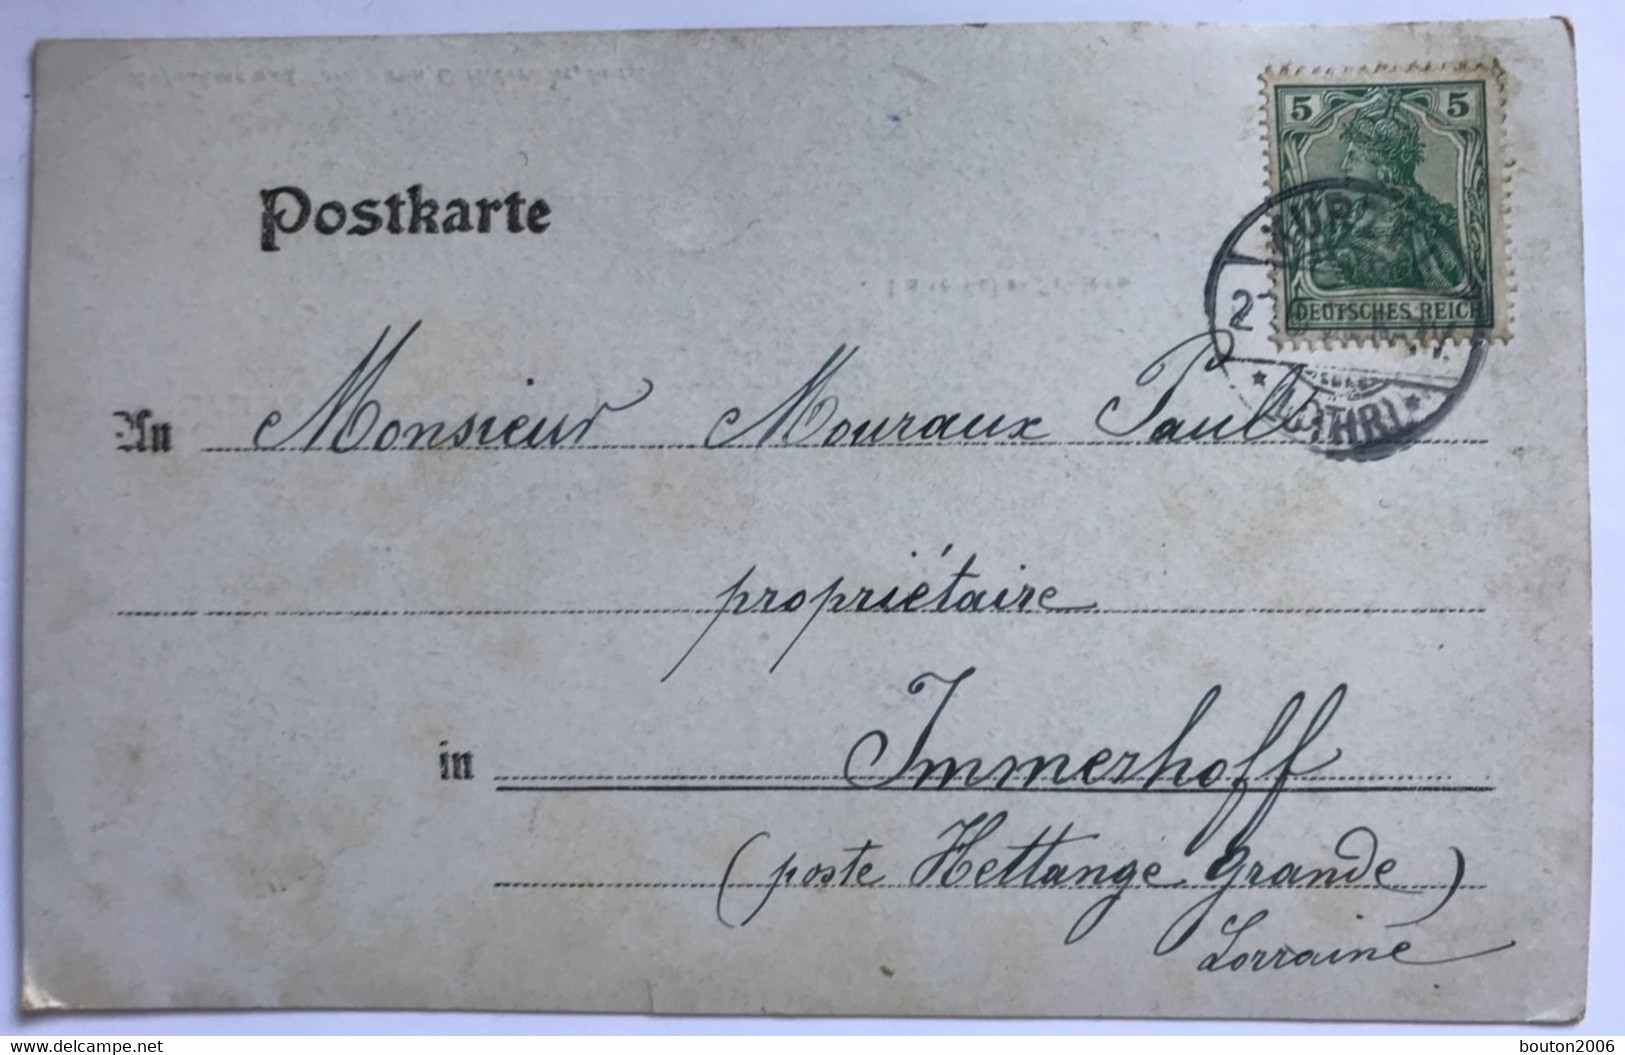 Postkarte
5 5
DEUTSCHES REICH
2
(LOTHR).
An Monsieur Mouraux Paul
propriétaire
in Immerhoff
(poste Hettange grande)
Lorraine
delcampe.net
bouton2006